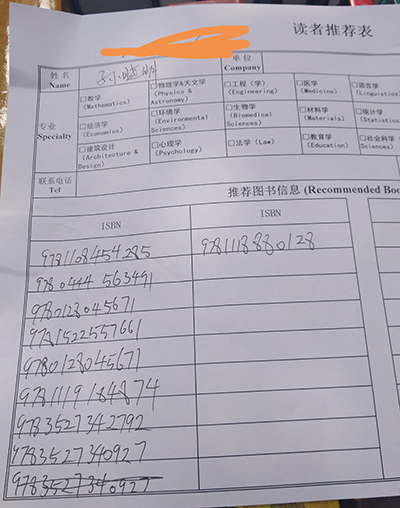 读者推荐表
姓名 Name
单位 Company
专业 Specialty
□数学 (Mathematics)
□物理学&天文学 (Physics & Astronomy)
□工程（学） (Engineering)
□医学 (Medicine)
□语言学 (Linguistics
□经济学 (Economics)
□环境学 (Environmental Sciences)
□生物学 (Biomedical Sciences)
□材料学 (Materials)
□统计学 (Statistics
□建筑设计 (Architecture & Design)
□心理学 (Psychology)
□法学 (Law)
□教育学 (Education)
□社会科学 Sciences)
联系电话 Tel
推荐图书信息 (Recommended Boo
ISBN ISBN
9781108454285 9781118880128
9780444563491
9780128045671
9781522557661
9780128045671
9781119184874
9783527342792
9783527340927
9783527340927